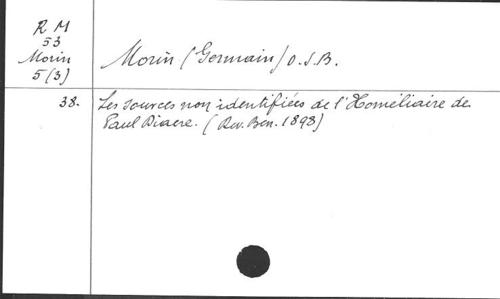 R M
53
Morin
5(3)
Morin (Germain) O.S.B.
38.
Les sources non identifiées de l'Homéliaire de
Paul Diacre. (Rev. Ben. 1898)